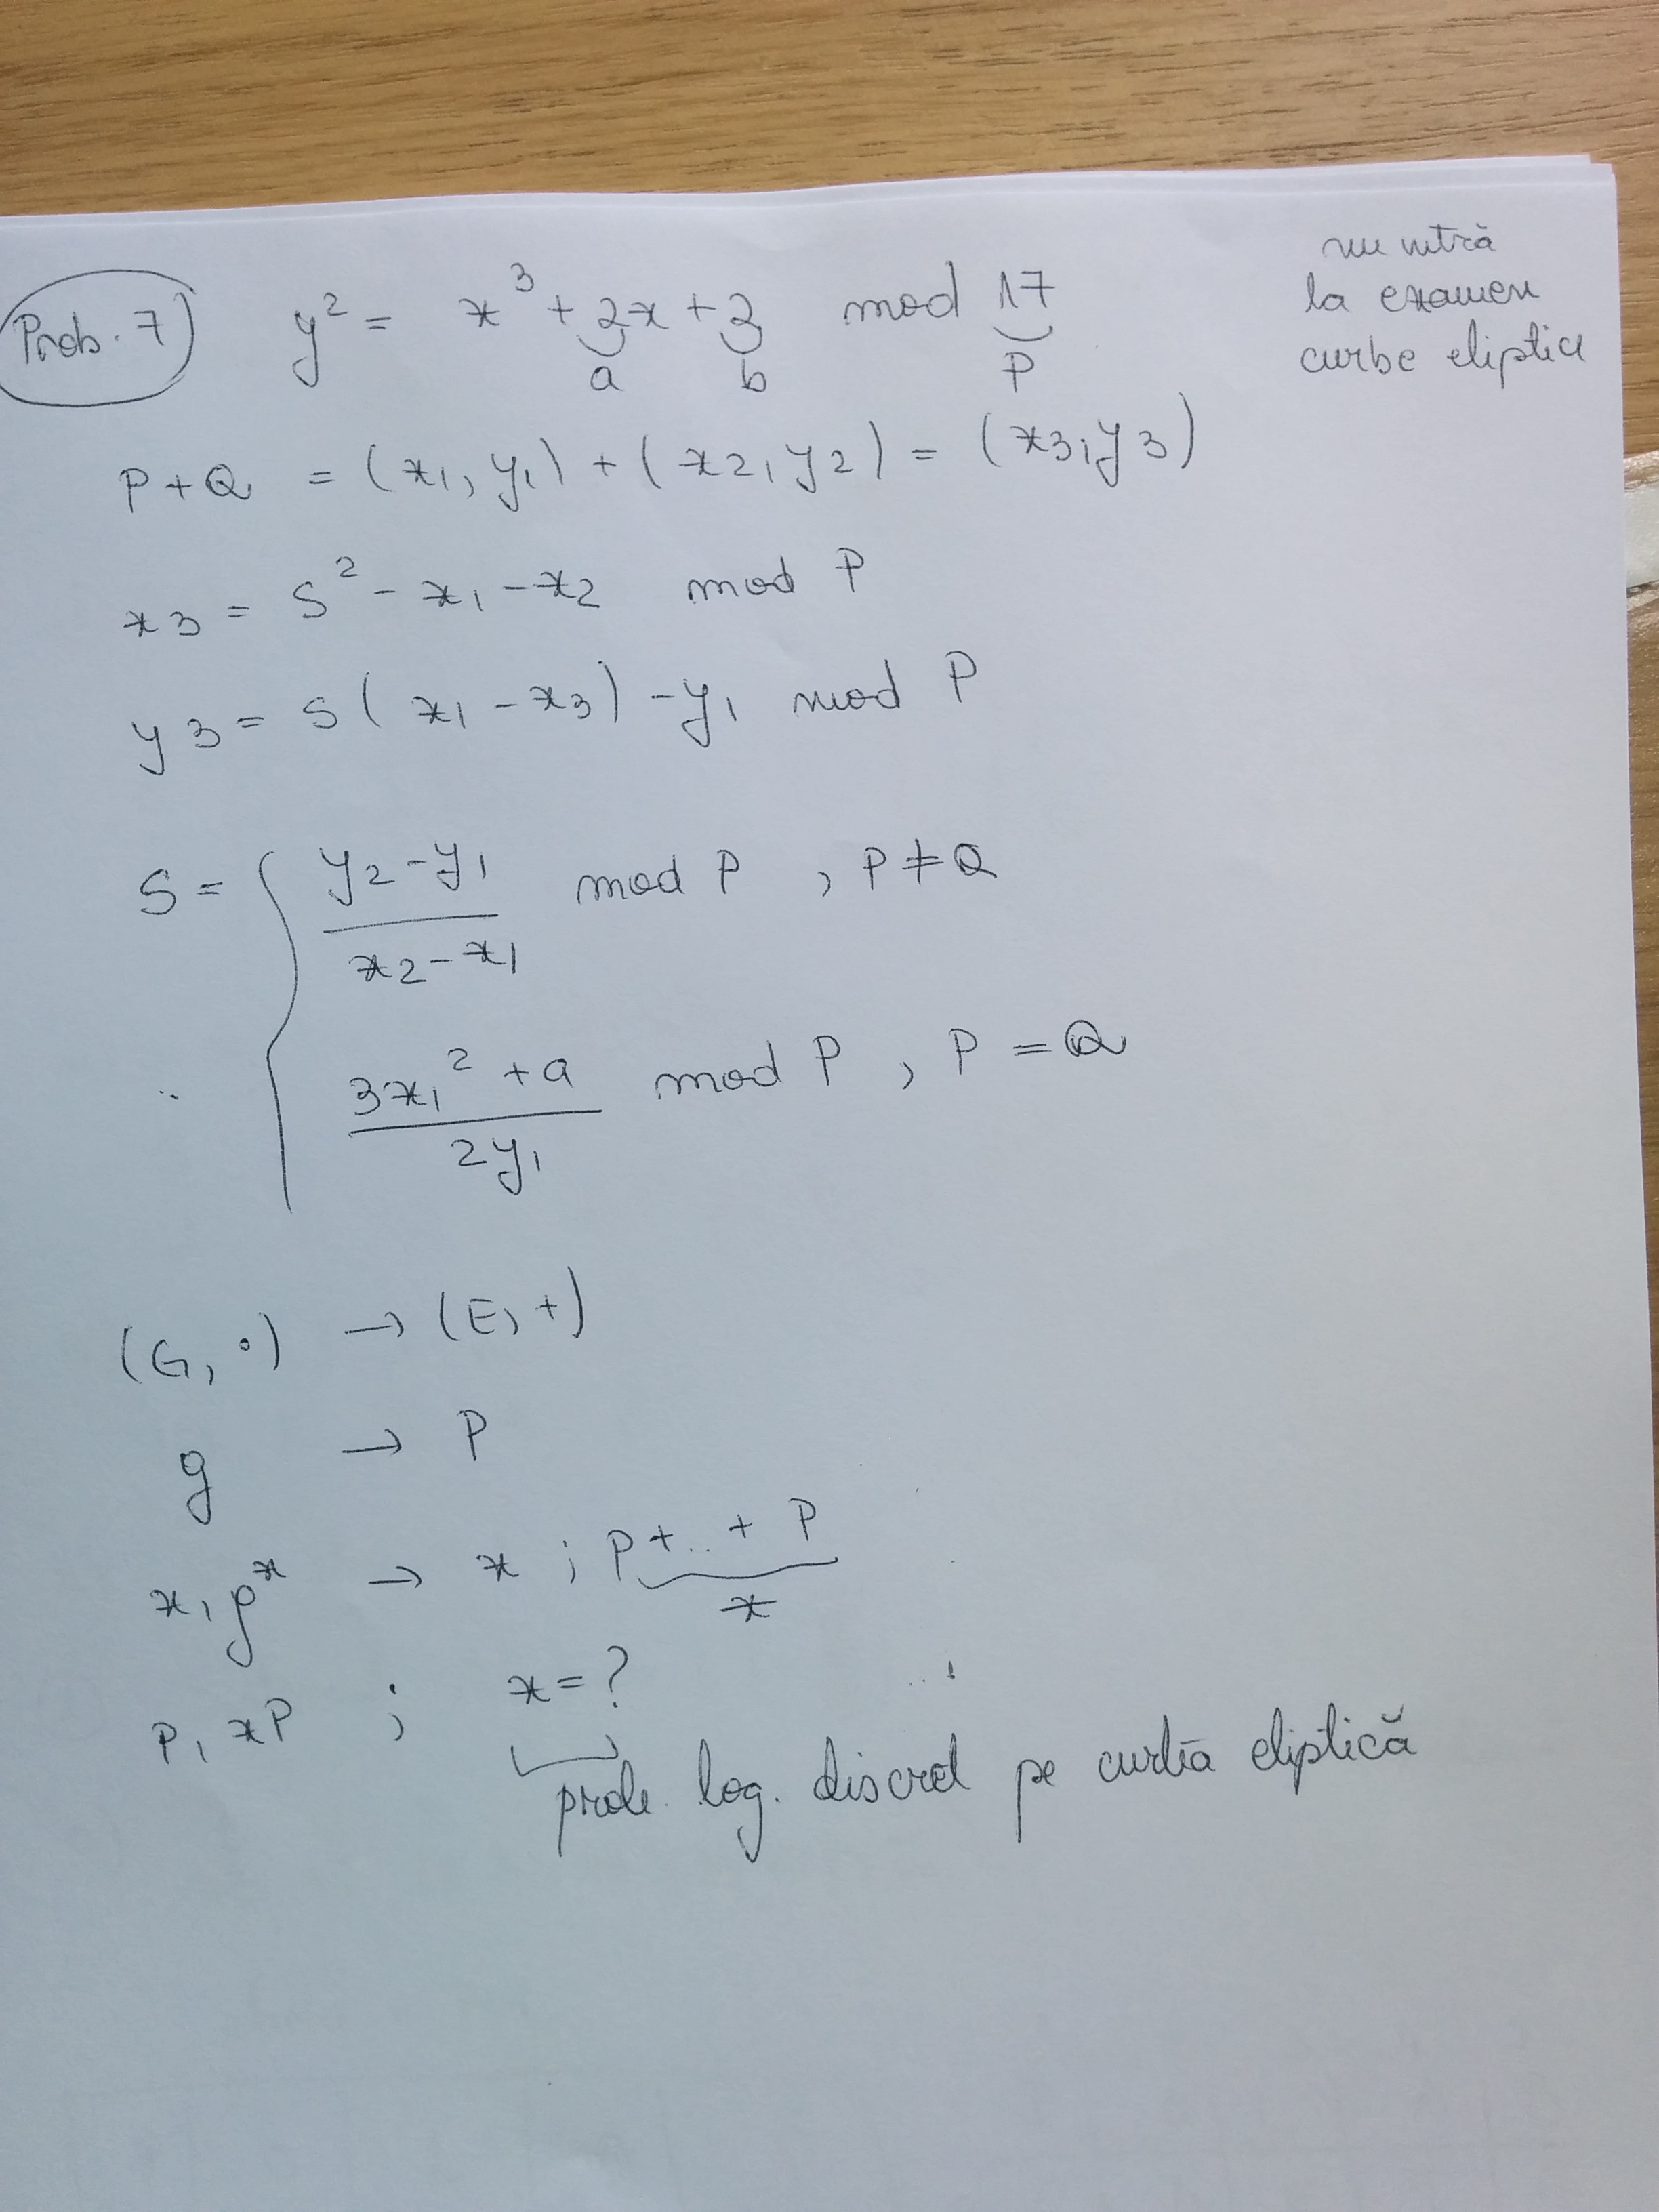 Prob. 7
y² = x³ + 2x + 2 mod 17
a b p
nu intră
la examen
curbe eliptice
P+Q = (x1, y1) + (x2, y2) = (x3, y3)
x3 = s² - x1 - x2 mod P
y3 = s(x1 - x3) - y1 mod P
S = { (y2 - y1) / (x2 - x1) mod P , P ≠ Q
(3x1² + a) / (2y1) mod P , P = Q
(G, ·) → (E, +)
g → P
x, g^x → x ; P + .. + P
x
P, xP ; x = ?
prob. log. discret pe curbă eliptică